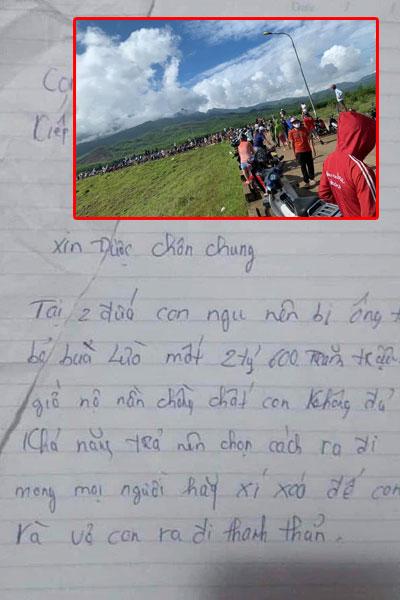 Kiếp
xin Được chôn chung
Tại 2 đứa con ngu nên bị ông
bỏ buà Lừa mất 2 tỷ 600 trăm
giờ nợ nần chồng chất con không đủ
Khả năng trả nên chọn cách ra đi
mong mọi người hãy xí xoá để con
Và vợ con ra đi thanh thản.